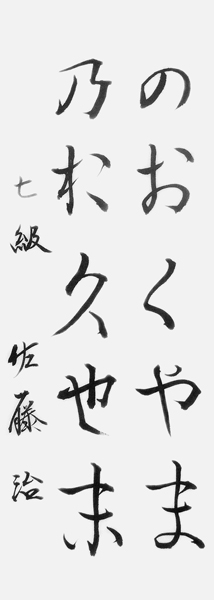 のおくやま
乃於久也末
七級 佐藤治